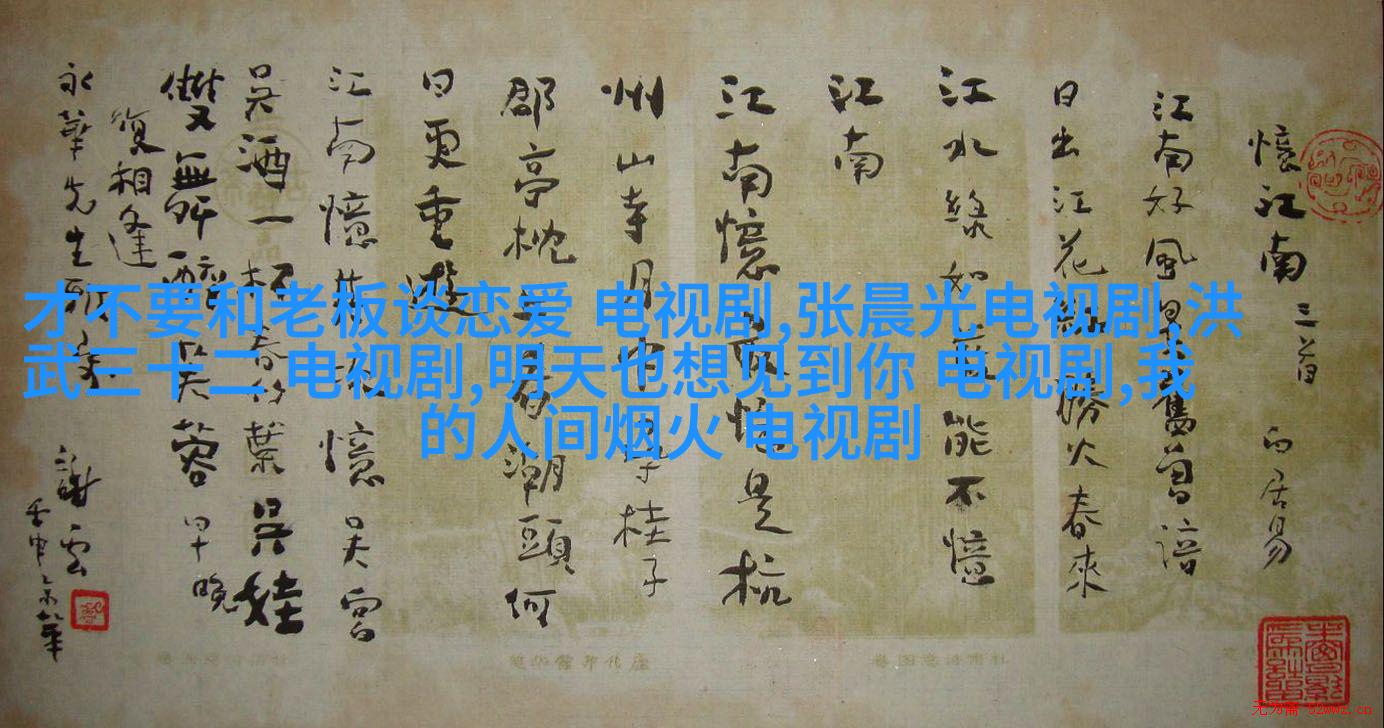 憶江南 三首 白居易
江南好風景舊曾諳
日出江花紅勝火春來
江水綠如藍能不憶
江南
江南憶最憶是杭
州山寺月中尋桂子
郡亭枕上看潮頭何
日更重遊
江南憶其次憶吳宮
吳酒一杯春竹葉吳娃
雙舞醉芙蓉早晚
復相逢
永華先生
謝雲
壬申
才不要和老板谈恋爱 电视剧,张晨光电视剧,洪
武三十二 电视剧,明天也想见到你 电视剧,我
的人间烟火 电视剧